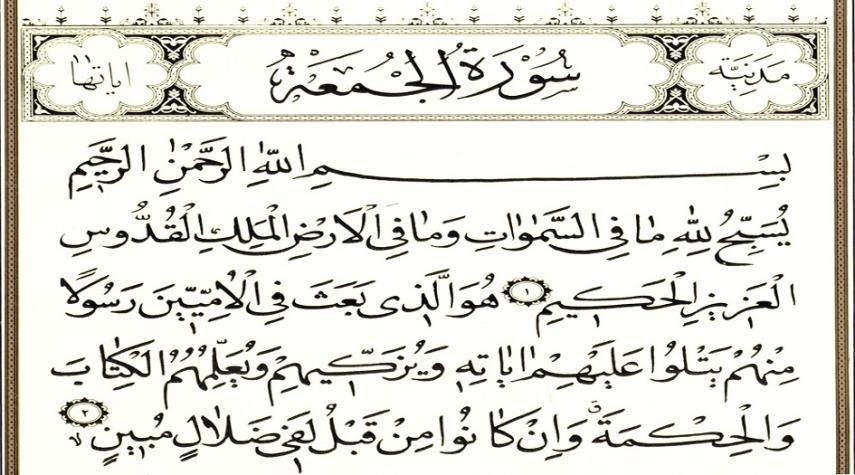 مَدَنِيَّة سُورَةُ الْجُمُعَةِ اياتها
بِسْمِ اللّٰهِ الرَّحْمٰنِ الرَّحِيمِ
يُسَبِّحُ لِلّٰهِ مَا فِي السَّمٰوَاتِ وَمَا فِي الْاَرْضِ الْمَلِكِ الْقُدُّوسِ
الْعَزِيزِ الْحَكِيمِ ١ هُوَ الَّذِى بَعَثَ فِي الْاُمِّيّنَ رَسُولًا
مِنْهُمْ يَتْلُوا عَلَيْهِمْ اٰيَاتِهِ وَيُزَكِّيهِمْ وَيُعَلِّمُهُمُ الْكِتَابَ
وَالْحِكْمَةَ وَاِنْ كَانُوا مِنْ قَبْلُ لَفِى ضَلَالٍ مُبِينٍ ٢